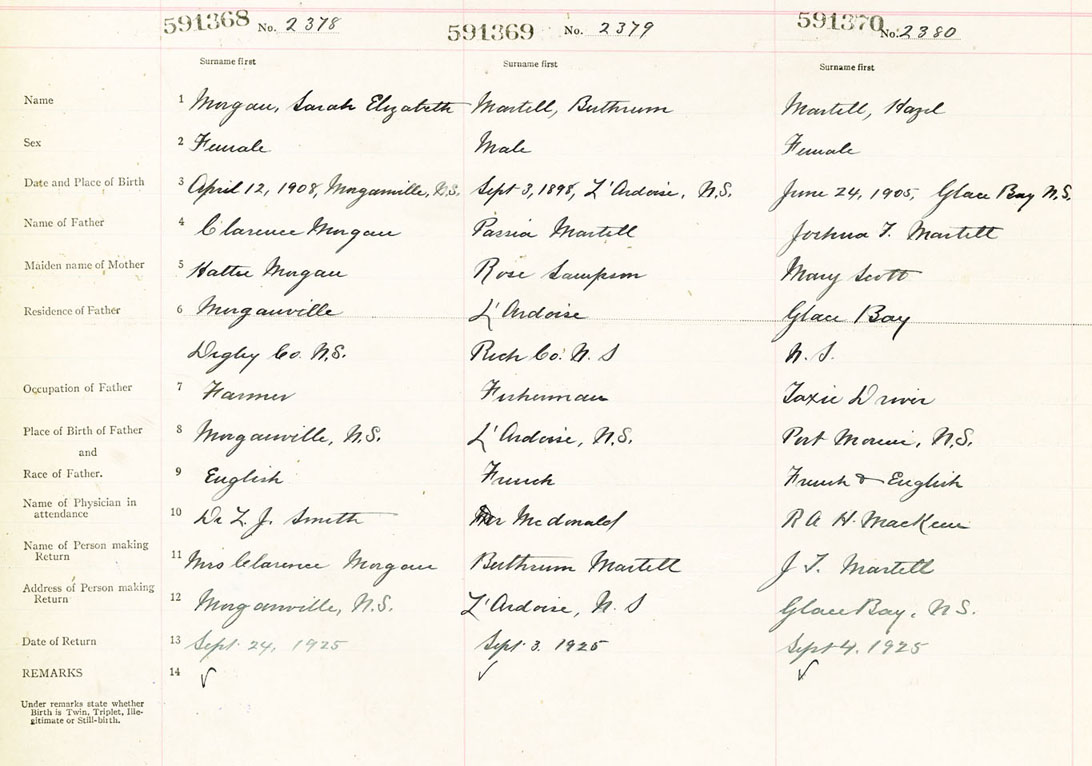 591368 No. 2378 591369 No. 2379 591370 No. 2380
Surname first Surname first Surname first
Name 1 Morgan, Sarah Elizabeth Martell, Buthrum Martell, Hazel
Sex 2 Female Male Female
Date and Place of Birth 3 April 12, 1908, Morganville, N.S. Sept 3, 1898, L'Ardoise, N.S. June 24, 1905, Glace Bay N.S.
Name of Father 4 Clarence Morgan Martell Joshua F. Martell
Maiden name of Mother 5 Hattie Morgan Rose Sampson Mary Scott
Residence of Father 6 Morganville L'Ardoise Glace Bay
Digby Co. N.S. Rich Co. N. S N. S.
Occupation of Father 7 Farmer Fisherman Taxie Driver
Place of Birth of Father 8 Morganville, N.S. L'Ardoise, N.S. Port Morien, N.S.
and
Race of Father. 9 English French French & English
Name of Physician in
attendance 10 Dr L. J. Smith Mcdonald R A H. MacKeen
Name of Person making
Return 11 Mrs Clarence Morgan Buthrum Martell J F. Martell
Address of Person making
Return 12 Morganville, N.S. L'Ardoise, N. S Glace Bay, N.S.
Date of Return 13 Sept. 24, 1925 Sept 3. 1925 Sept 4. 1925
REMARKS 14 ✓ ✓ ✓
Under remarks state whether
Birth is Twin, Triplet, Ille-
gitimate or Still-birth.